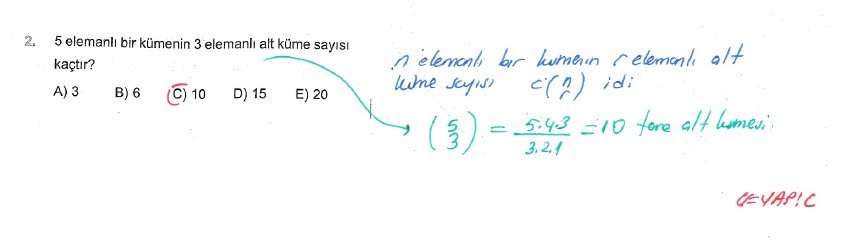 2. 5 elemanlı bir kümenin 3 elemanlı alt küme sayısı
kaçtır?
A) 3 B) 6 C) 10 D) 15 E) 20
n elemanlı bir kumenin r elemanlı alt
kume sayısı C(n r) idi
(5 3) = 5.4.3 / 3.2.1 = 10 tane alt kumesi.
CEVAP: C